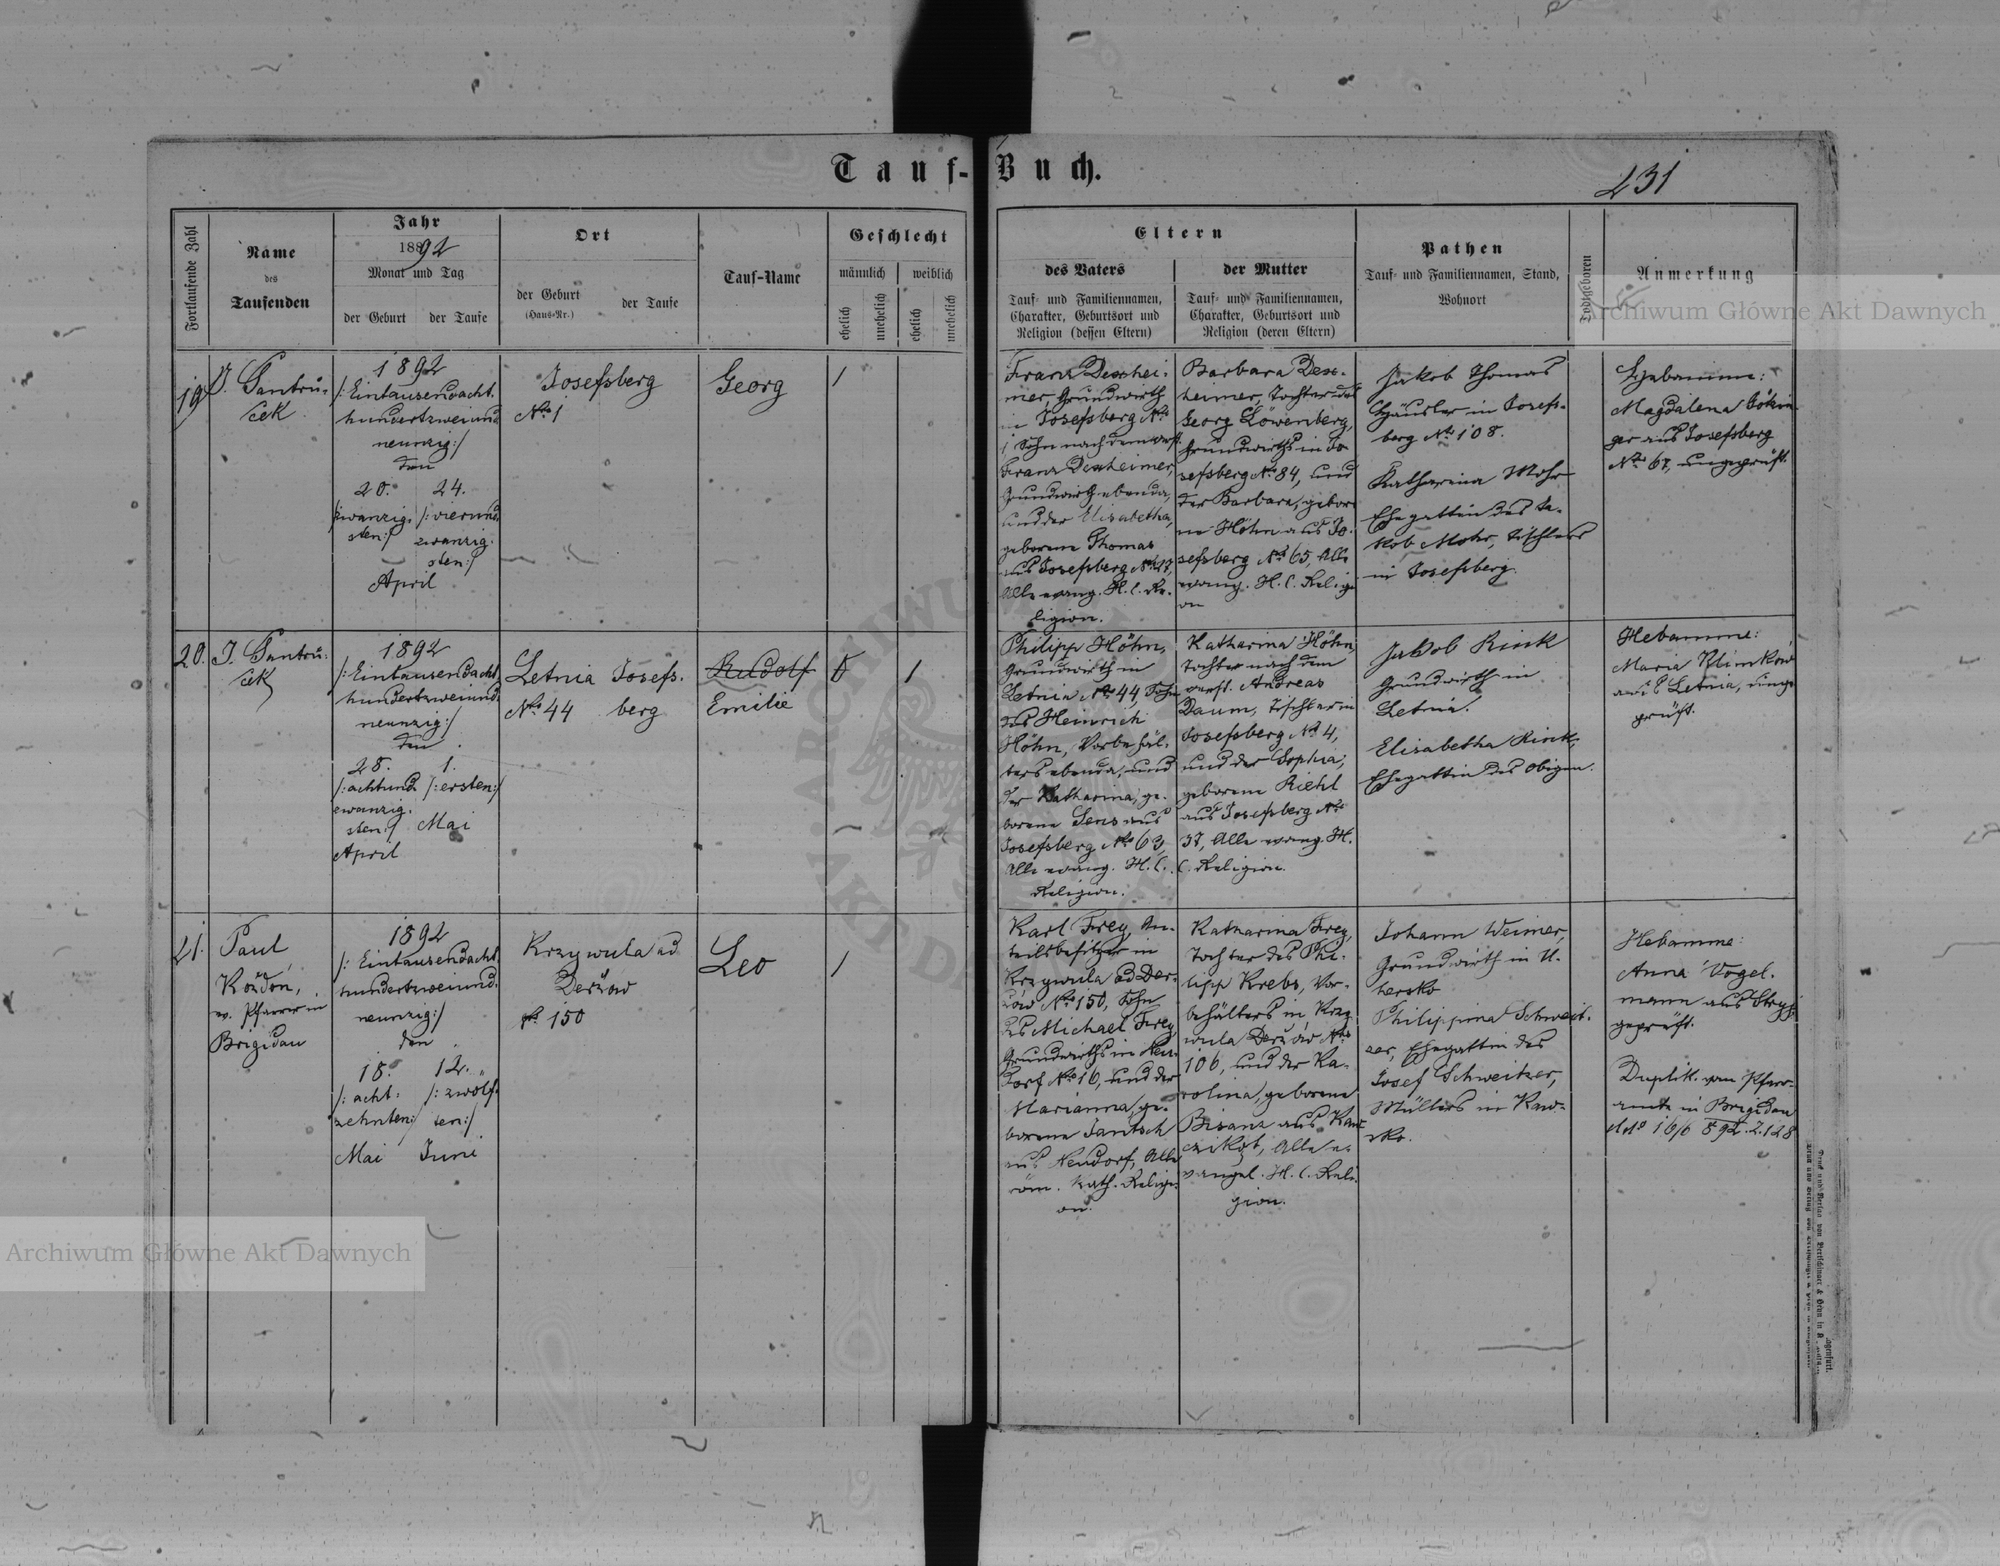 Tauf-Buch.
231
Fortlaufende Zahl
Name
des
Taufenden
Jahr
1892
Monat und Tag
der Geburt
der Taufe
Ort
der Geburt
(Haus-Nr.)
der Taufe
Tauf-Name
Geschlecht
männlich
weiblich
ehelich
unehelich
ehelich
unehelich
Eltern
des Vaters
Tauf- und Familiennamen,
Charakter, Geburtsort und
Religion (dessen Eltern)
der Mutter
Tauf- und Familiennamen,
Charakter, Geburtsort und
Religion (deren Eltern)
Pathen
Tauf- und Familiennamen, Stand,
Wohnort
Todtgeboren
Anmerkung
19
J. Santru-
ček
1892
/:Eintausendacht-
hundertzweiund
neunzig:/
den
20. 24.
zwanzig- /:vierund
sten:/ zwanzig-
sten:/
April
Josefsberg
No 1
Georg
1
Franz Dexhei-
mer, Grundwirth
in Josefsberg No
1, Sohn nach dem verst.
Franz Dexheimer,
Grundwirth ebenda,
und der Elisabetha,
geborene Thomas
aus Josefsberg No 17,
Alle evang. H. C. Re-
ligion.
Barbara Dex-
heimer, Tochter des
Georg Löwenberg,
Grundwirths in Jo-
sefsberg No 84, und
der Barbara, gebore-
ne Höhn aus Jo-
sefsberg No 65, Alle
evang. H. C. Religi-
on
Jakob Thomas
Häusler in Josefs-
berg No 108.
Katharina Mohr
Ehegattin des Ja-
kob Mohr, Tischlers
in Josefsberg.
Hebamme:
Magdalena
ger aus Josefsberg
No 67, ungeprüft.
20.
J. Santru-
ček
1892
/:Eintausendacht
hundertzweiund
neunzig:/
den
28. 1.
/:achtund /:ersten:/
zwanzig-
sten:/ Mai
April
Letnia Josefs-
No 44 berg
Rudolf
Emilie
1
Philipp Höhn,
Grundwirth in
Letnia No 44, Sohn
des Heinrich
Höhn, Vorbehäl-
ters ebenda, und
der Katharina, ge-
borene Sens aus
Josefsberg No 63,
Alle evang. H. C.
Religion.
Katharina Höhn,
Tochter nach dem
verst. Andreas
Daum, Tischler in
Josefsberg No 4,
und der Sophia,
geborene Riehl
aus Josefsberg No
37, Alle evang. H.
C. Religion.
Jakob Rink
Grundwirth in
Letnia.
Elisabetha Rink,
Ehegattin des Obigen.
Hebamme:
Maria Klimków
aus Letnia, unge-
prüft.
21.
Paul
Koždoń,
ev. Pfarrer in
Brigidau
1892
/:Eintausendacht
hundertzweiund-
neunzig:/
den
18. 12.
/:acht- /:zwölf-
zehnten:/ ten:/
Mai Juni
Krzywula ad
Derżów
No 150
Leo
1
Karl Frey, An-
teilsbesitzer in
Krzywula ad Der-
żów No 150, Sohn
des Michael Frey,
Grundwirths in Neu-
dorf No 16, und der
Marianna, ge-
borene Jantsch
aus Neudorf, Alle
röm. kath. Religi-
on.
Katharina Frey,
Tochter des Phi-
lipp Krebs, Vor-
behälters in Krzy-
wula Derżów No
106, und der Ka-
rolina, geborene
Bisanz aus
Alle e-
vangel. H. C. Reli-
gion.
Johann Weimer,
Grundwirth in U-
hersko
Philippina Schweit-
zer, Ehegattin des
Josef Schweitzer,
Müllers in Kaw-
sko.
Hebamme:
Anna Vogel-
mann aus Stryj,
geprüft.
Duplik. vom Pfarr-
amte in Brigidau
ddo 16/6 892. Z. 128
Archiwum Główne Akt Dawnych
Archiwum Główne Akt Dawnych